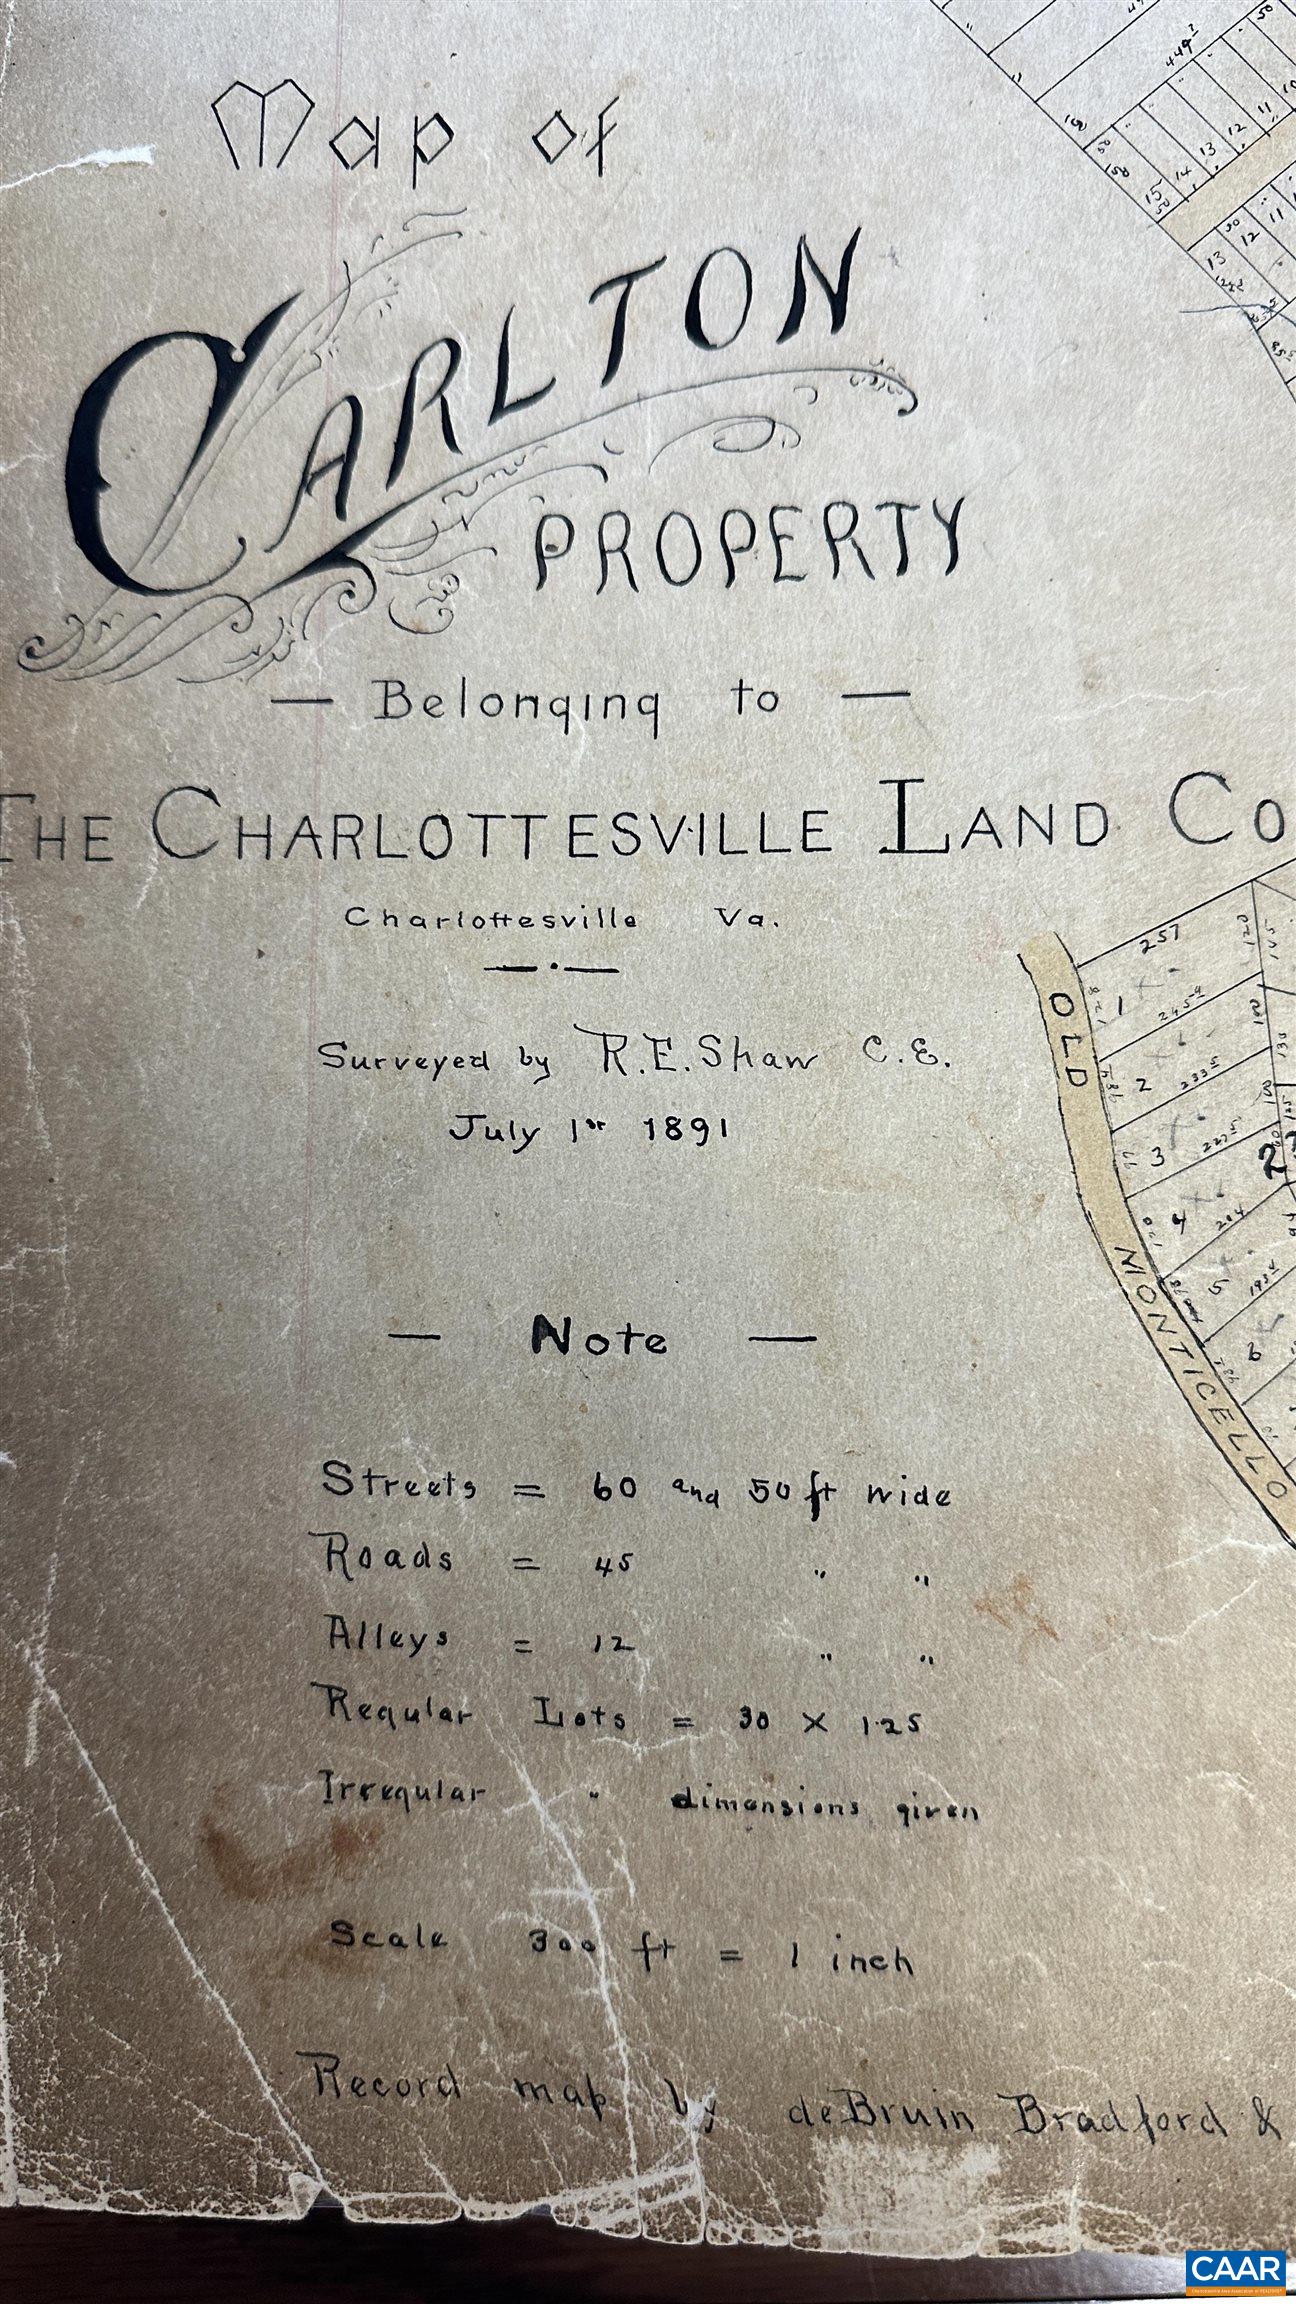 Map of
CARLTON
PROPERTY
— Belonging to —
THE CHARLOTTESVILLE LAND CO
Charlottesville Va.
Surveyed by R.E. Shaw C.E.
July 1st 1891
— Note —
Streets = 60 and 50 ft wide
Roads = 45 " "
Alleys = 12 " "
Regular Lots = 30 X 125
Irregular " dimensions given
Scale 300 ft = 1 inch
Record map by deBruin Bradford &
OLD MONTICELLO
257
1
2
3
4
204
5
6
10
11
12
13
14
15
50
11
12
13
CAAR